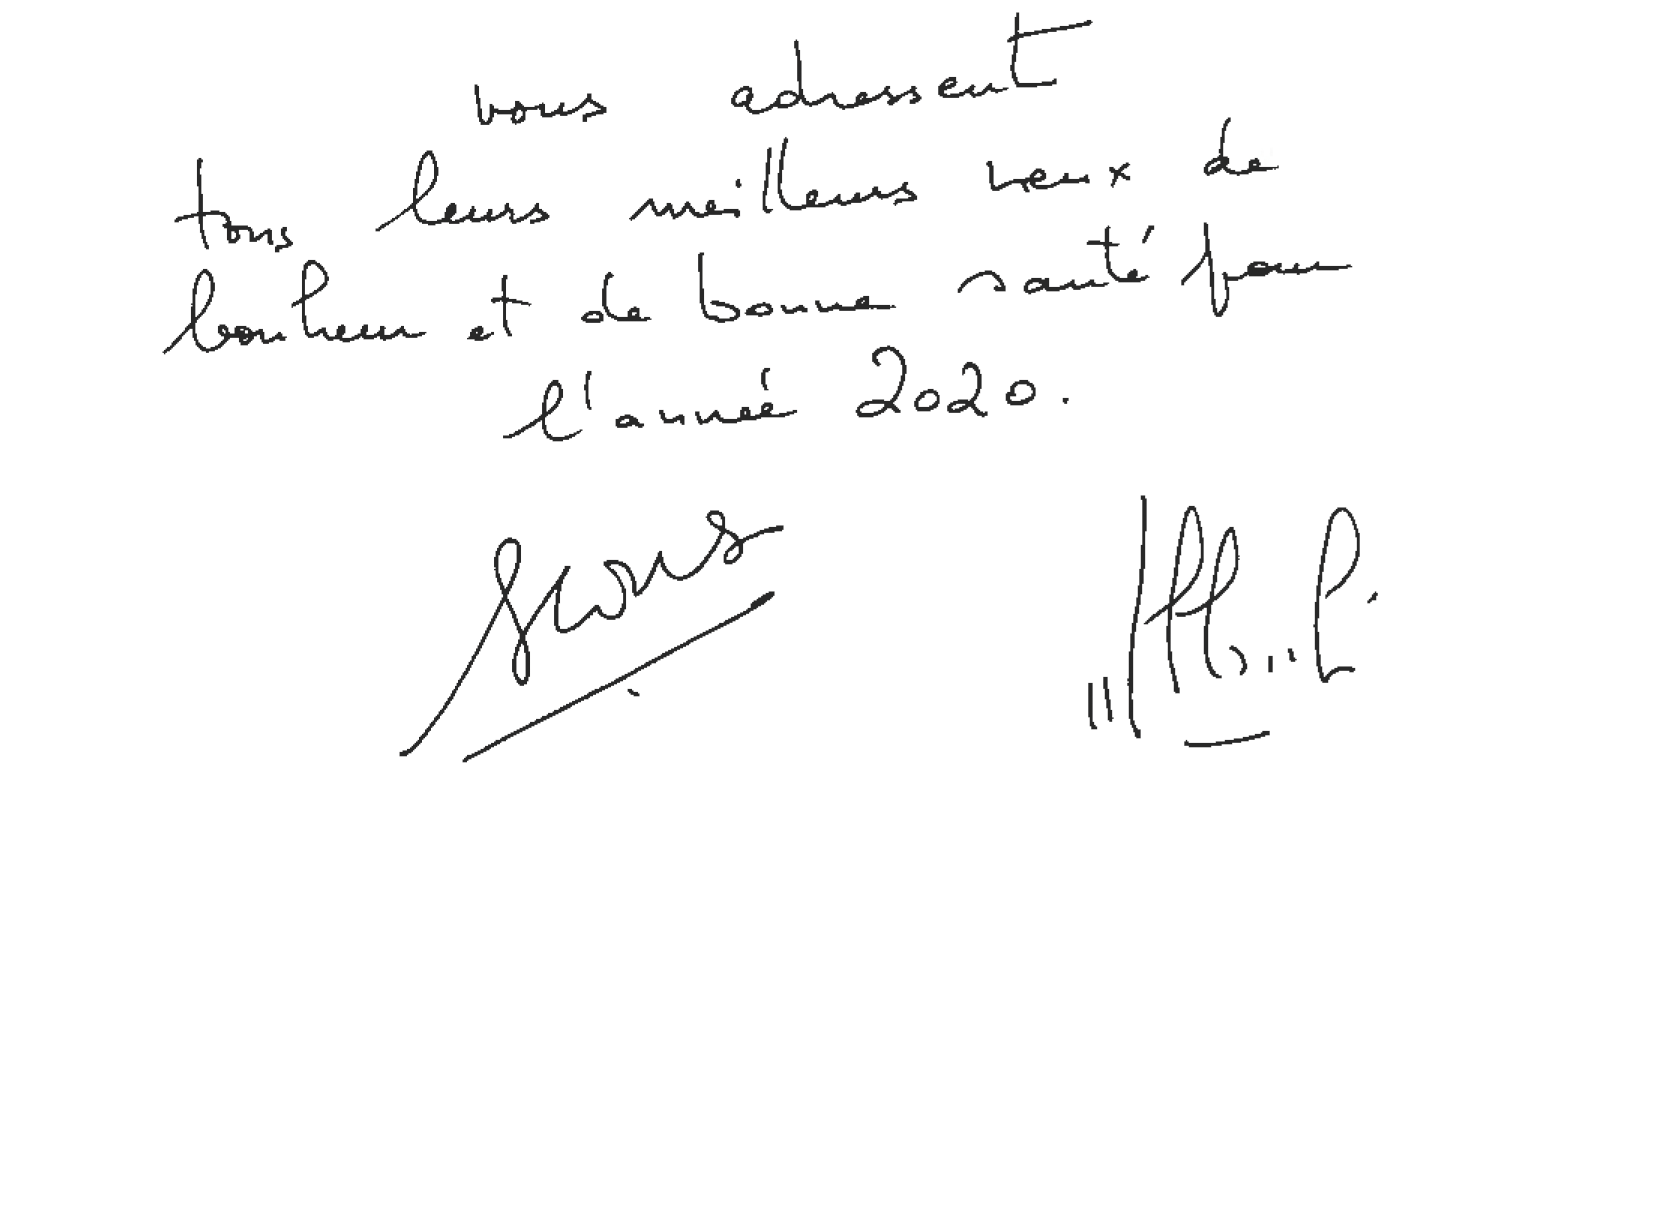 vous adressent
tous leurs meilleurs veux de
bonheur et de bonne santé pour
l'année 2020.